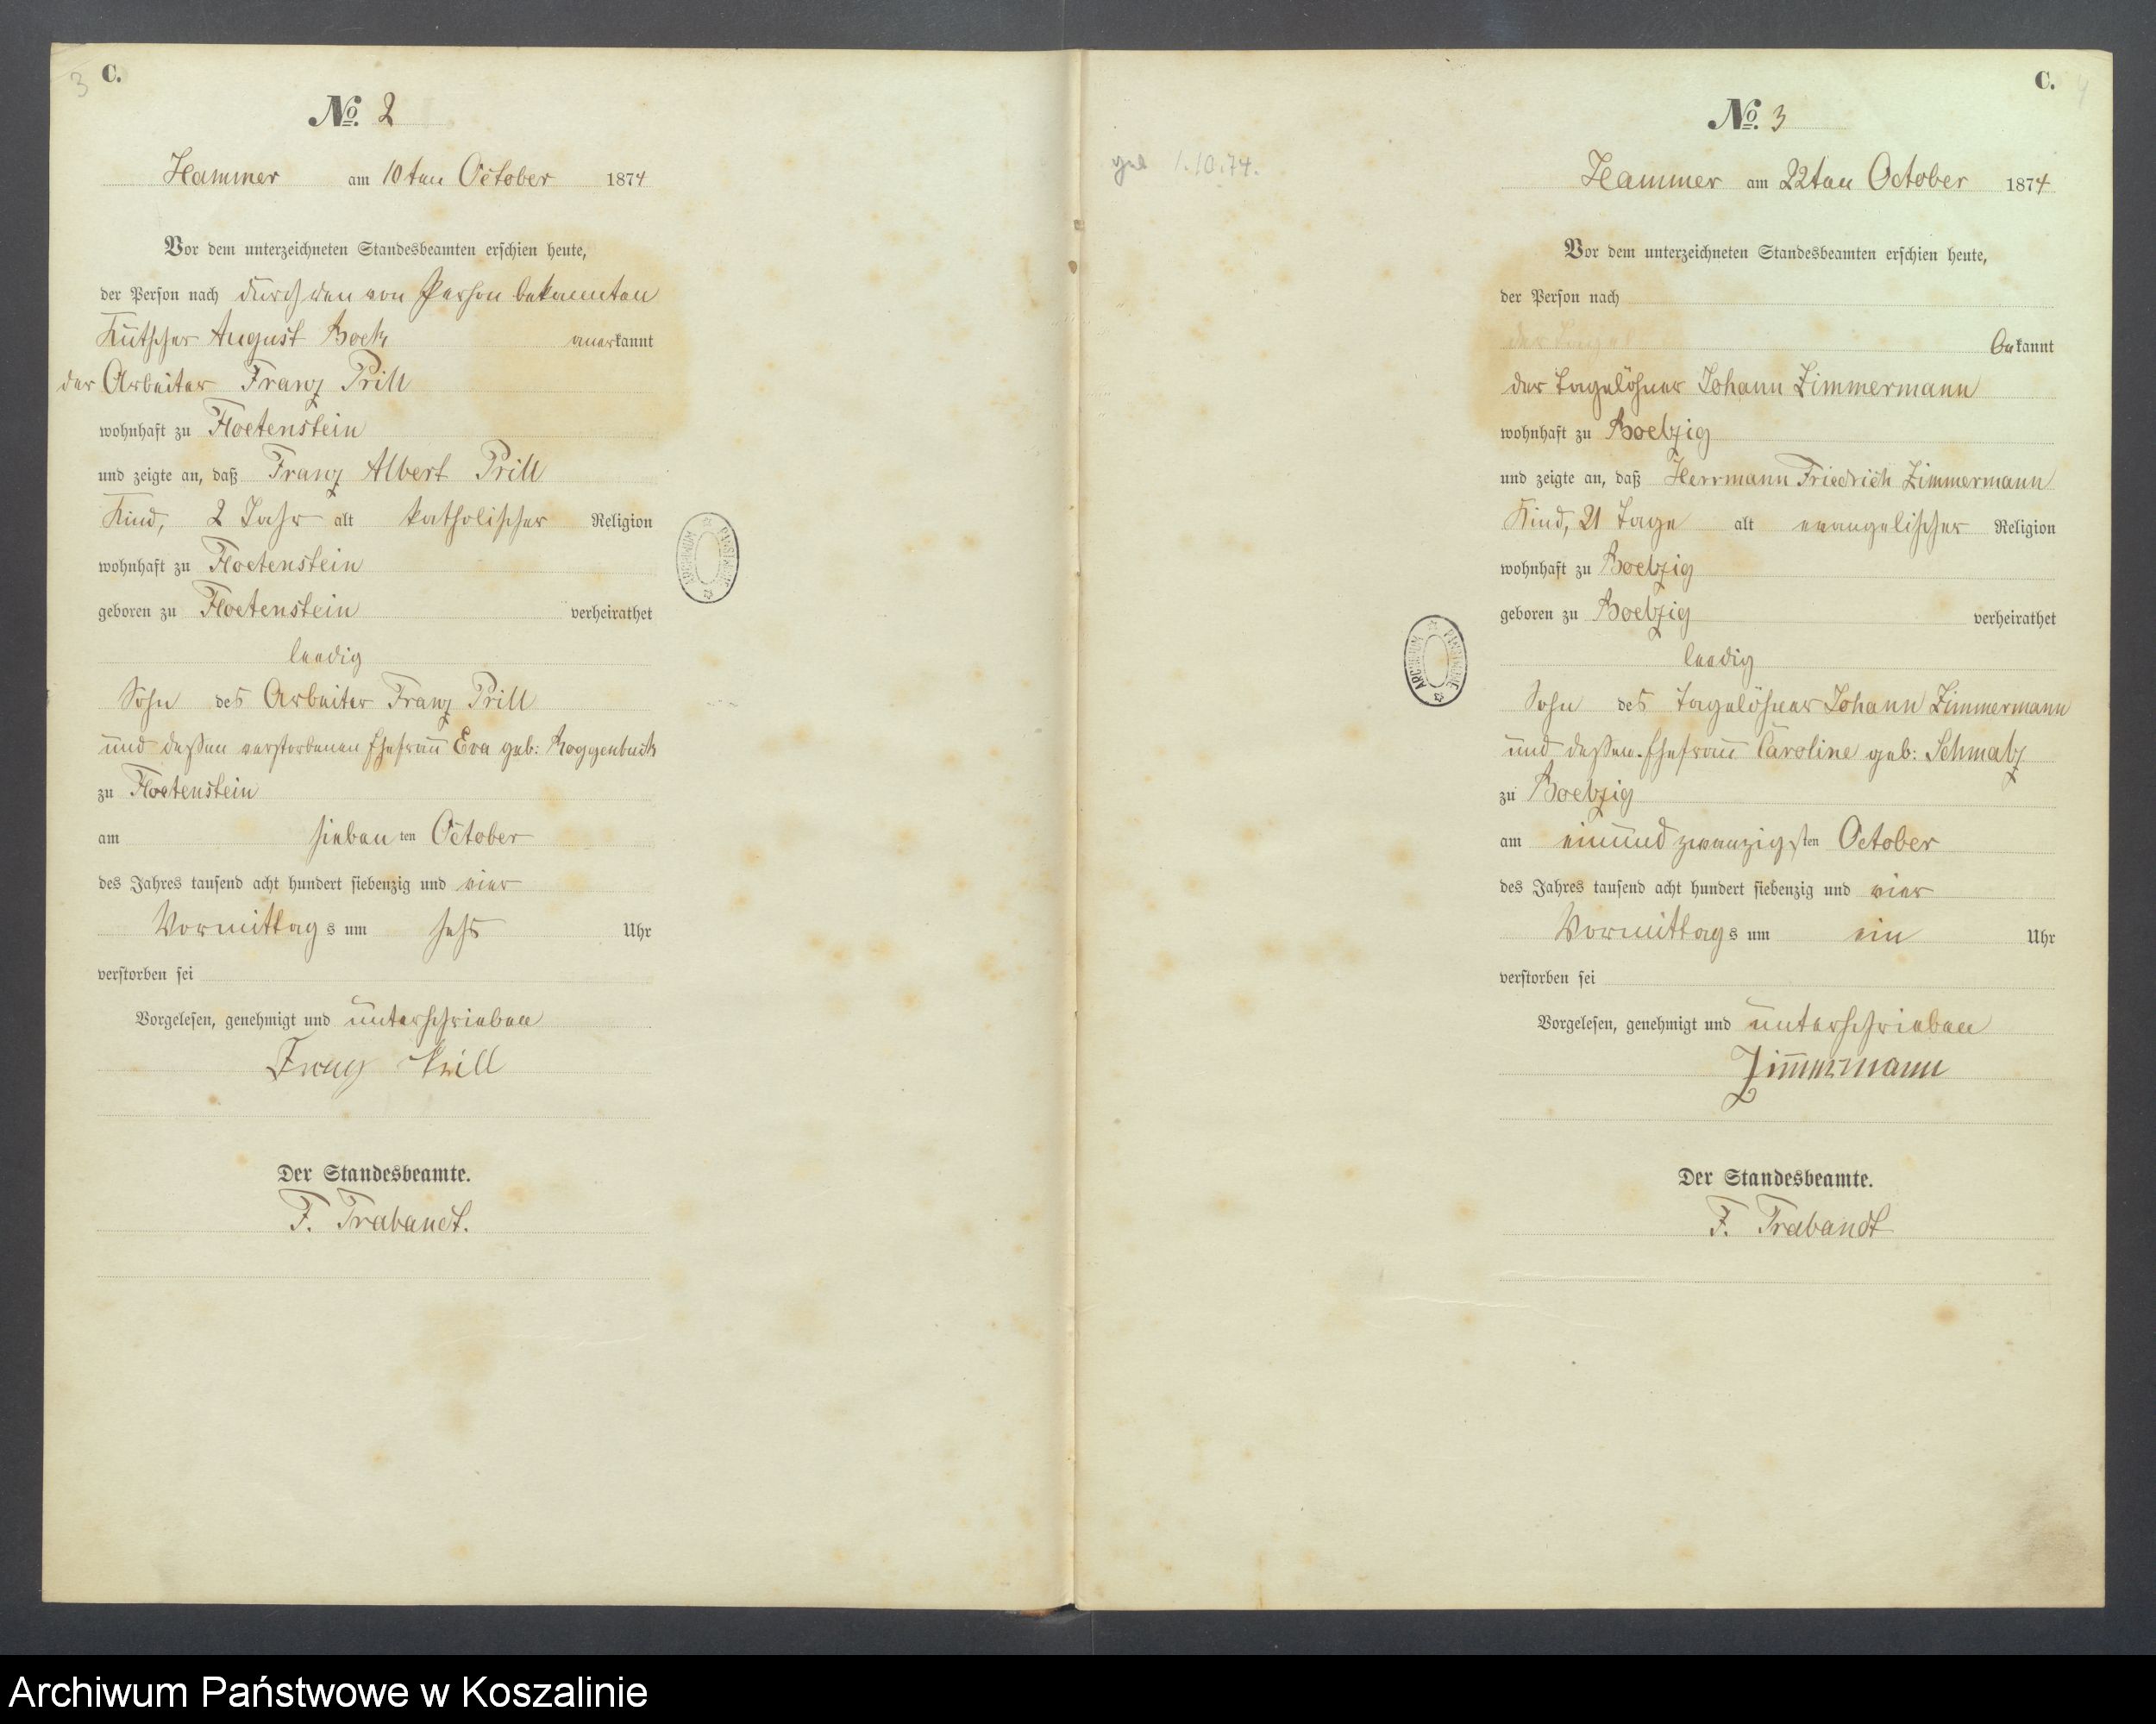 3 C.
No. 2
Hammer am 10ten October 1874
Vor dem unterzeichneten Standesbeamten erschien heute,
der Person nach durch den von Person bekannten
Kutscher August Boek anerkannt
der Arbeiter Franz Prill
wohnhaft zu Floetenstein
und zeigte an, daß Franz Albert Prill
Kind, 2 Jahr alt katholischer Religion
wohnhaft zu Floetenstein
geboren zu Floetenstein verheirathet
leedig
Sohn des Arbeiter Franz Prill
und deßen verstorbenen Ehefrau Eva geb: Roggenbuck
zu Floetenstein
am sieben ten October
des Jahres tausend acht hundert siebenzig und vier
Vormittag s um sechs Uhr
verstorben sei
Vorgelesen, genehmigt und unterschrieben
Franz Prill
Der Standesbeamte.
F. Trabandt.
ARCHIWUM PAŃSTWOWE
1.10.74.
C. 4
No. 3
Hammer am 22ten October 1874
Vor dem unterzeichneten Standesbeamten erschien heute,
der Person nach
bekannt
der Tagelöhner Johann Zimmermann
wohnhaft zu Boelzig
und zeigte an, daß Herrmann Friedrich Zimmermann
Kind, 21 Tage alt evangelischer Religion
wohnhaft zu Boelzig
geboren zu Boelzig verheirathet
leedig
Sohn des Tagelöhner Johann Zimmermann
und deßen Ehefrau Caroline geb: Schmalz
zu Boelzig
am einundzwanzigsten October
des Jahres tausend acht hundert siebenzig und vier
Vormittag s um ein Uhr
verstorben sei
Vorgelesen, genehmigt und unterschrieben
Zimmermann
Der Standesbeamte.
F. Trabandt
ARCHIWUM PAŃSTWOWE
Archiwum Państwowe w Koszalinie